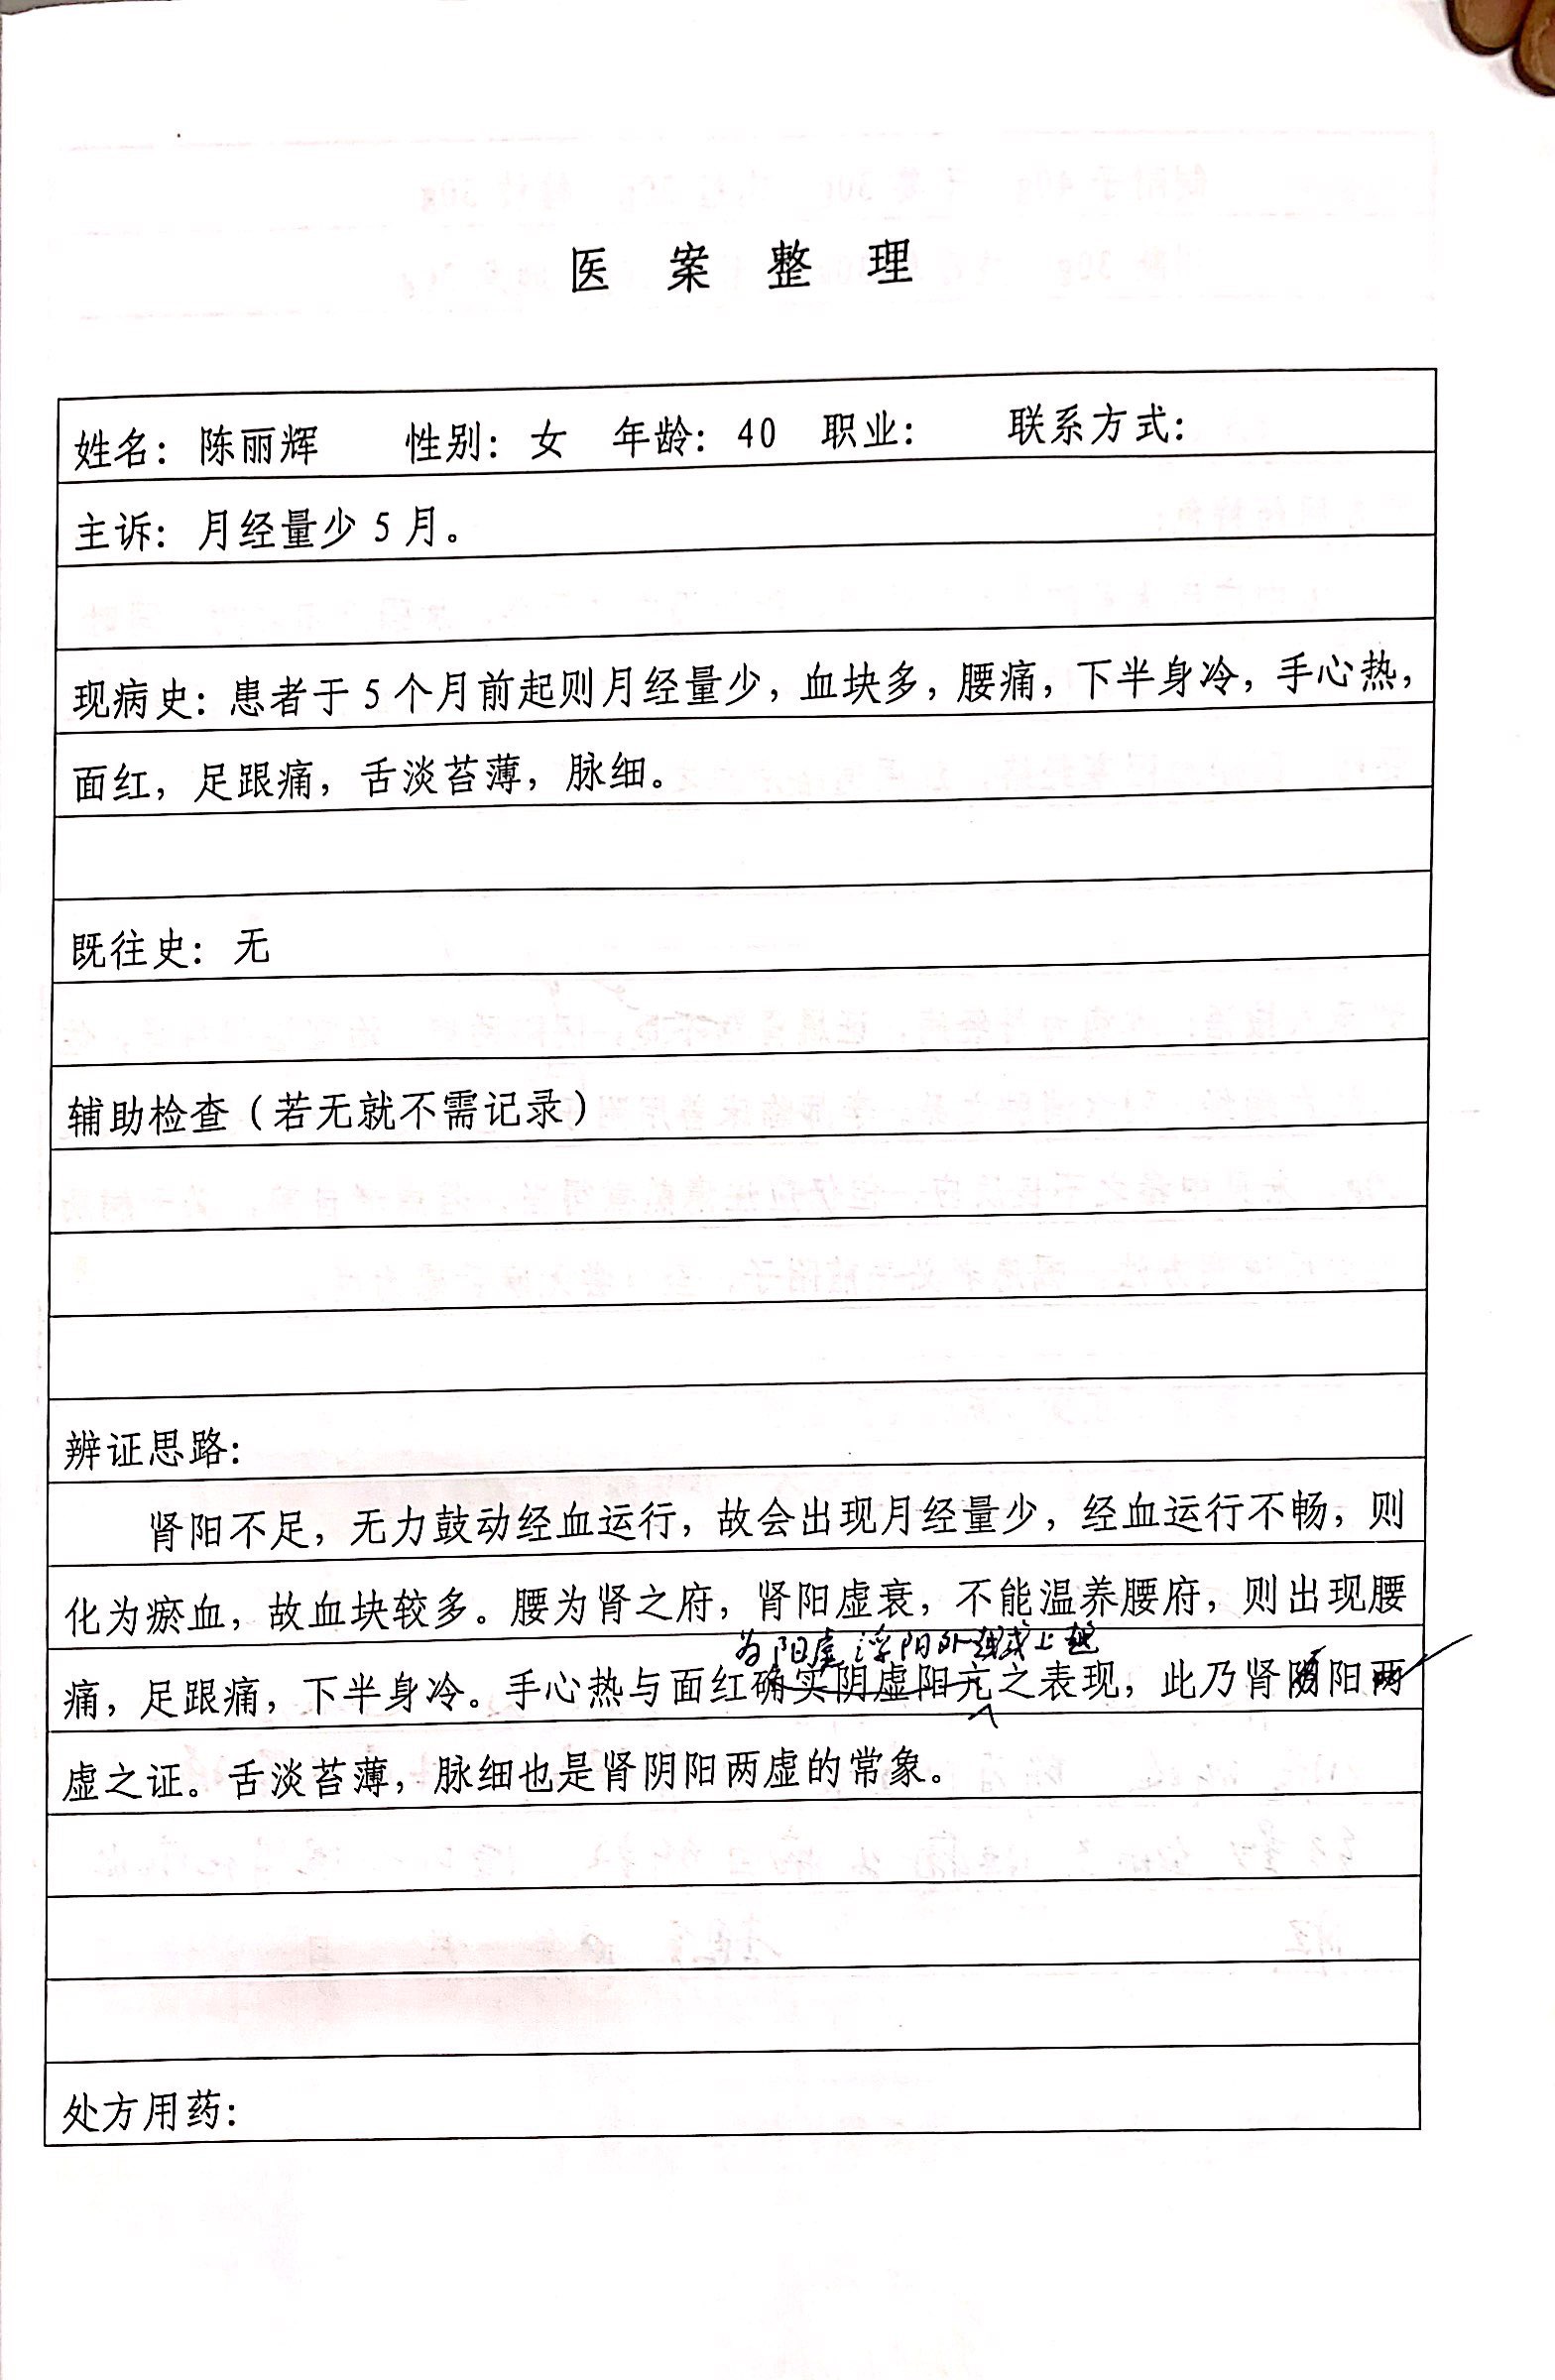 医案整理
姓名：陈丽辉 性别：女 年龄：40 职业： 联系方式：
主诉：月经量少5月。
现病史：患者于5个月前起则月经量少，血块多，腰痛，下半身冷，手心热，
面红，足跟痛，舌淡苔薄，脉细。
既往史：无
辅助检查（若无就不需记录）
辨证思路：
肾阳不足，无力鼓动经血运行，故会出现月经量少，经血运行不畅，则
化为瘀血，故血块较多。腰为肾之府，肾阳虚衰，不能温养腰府，则出现腰
为阳虚浮阳外越或上越
痛，足跟痛，下半身冷。手心热与面红确实阴虚阳亢之表现，此乃肾阴阳两
虚之证。舌淡苔薄，脉细也是肾阴阳两虚的常象。
处方用药：